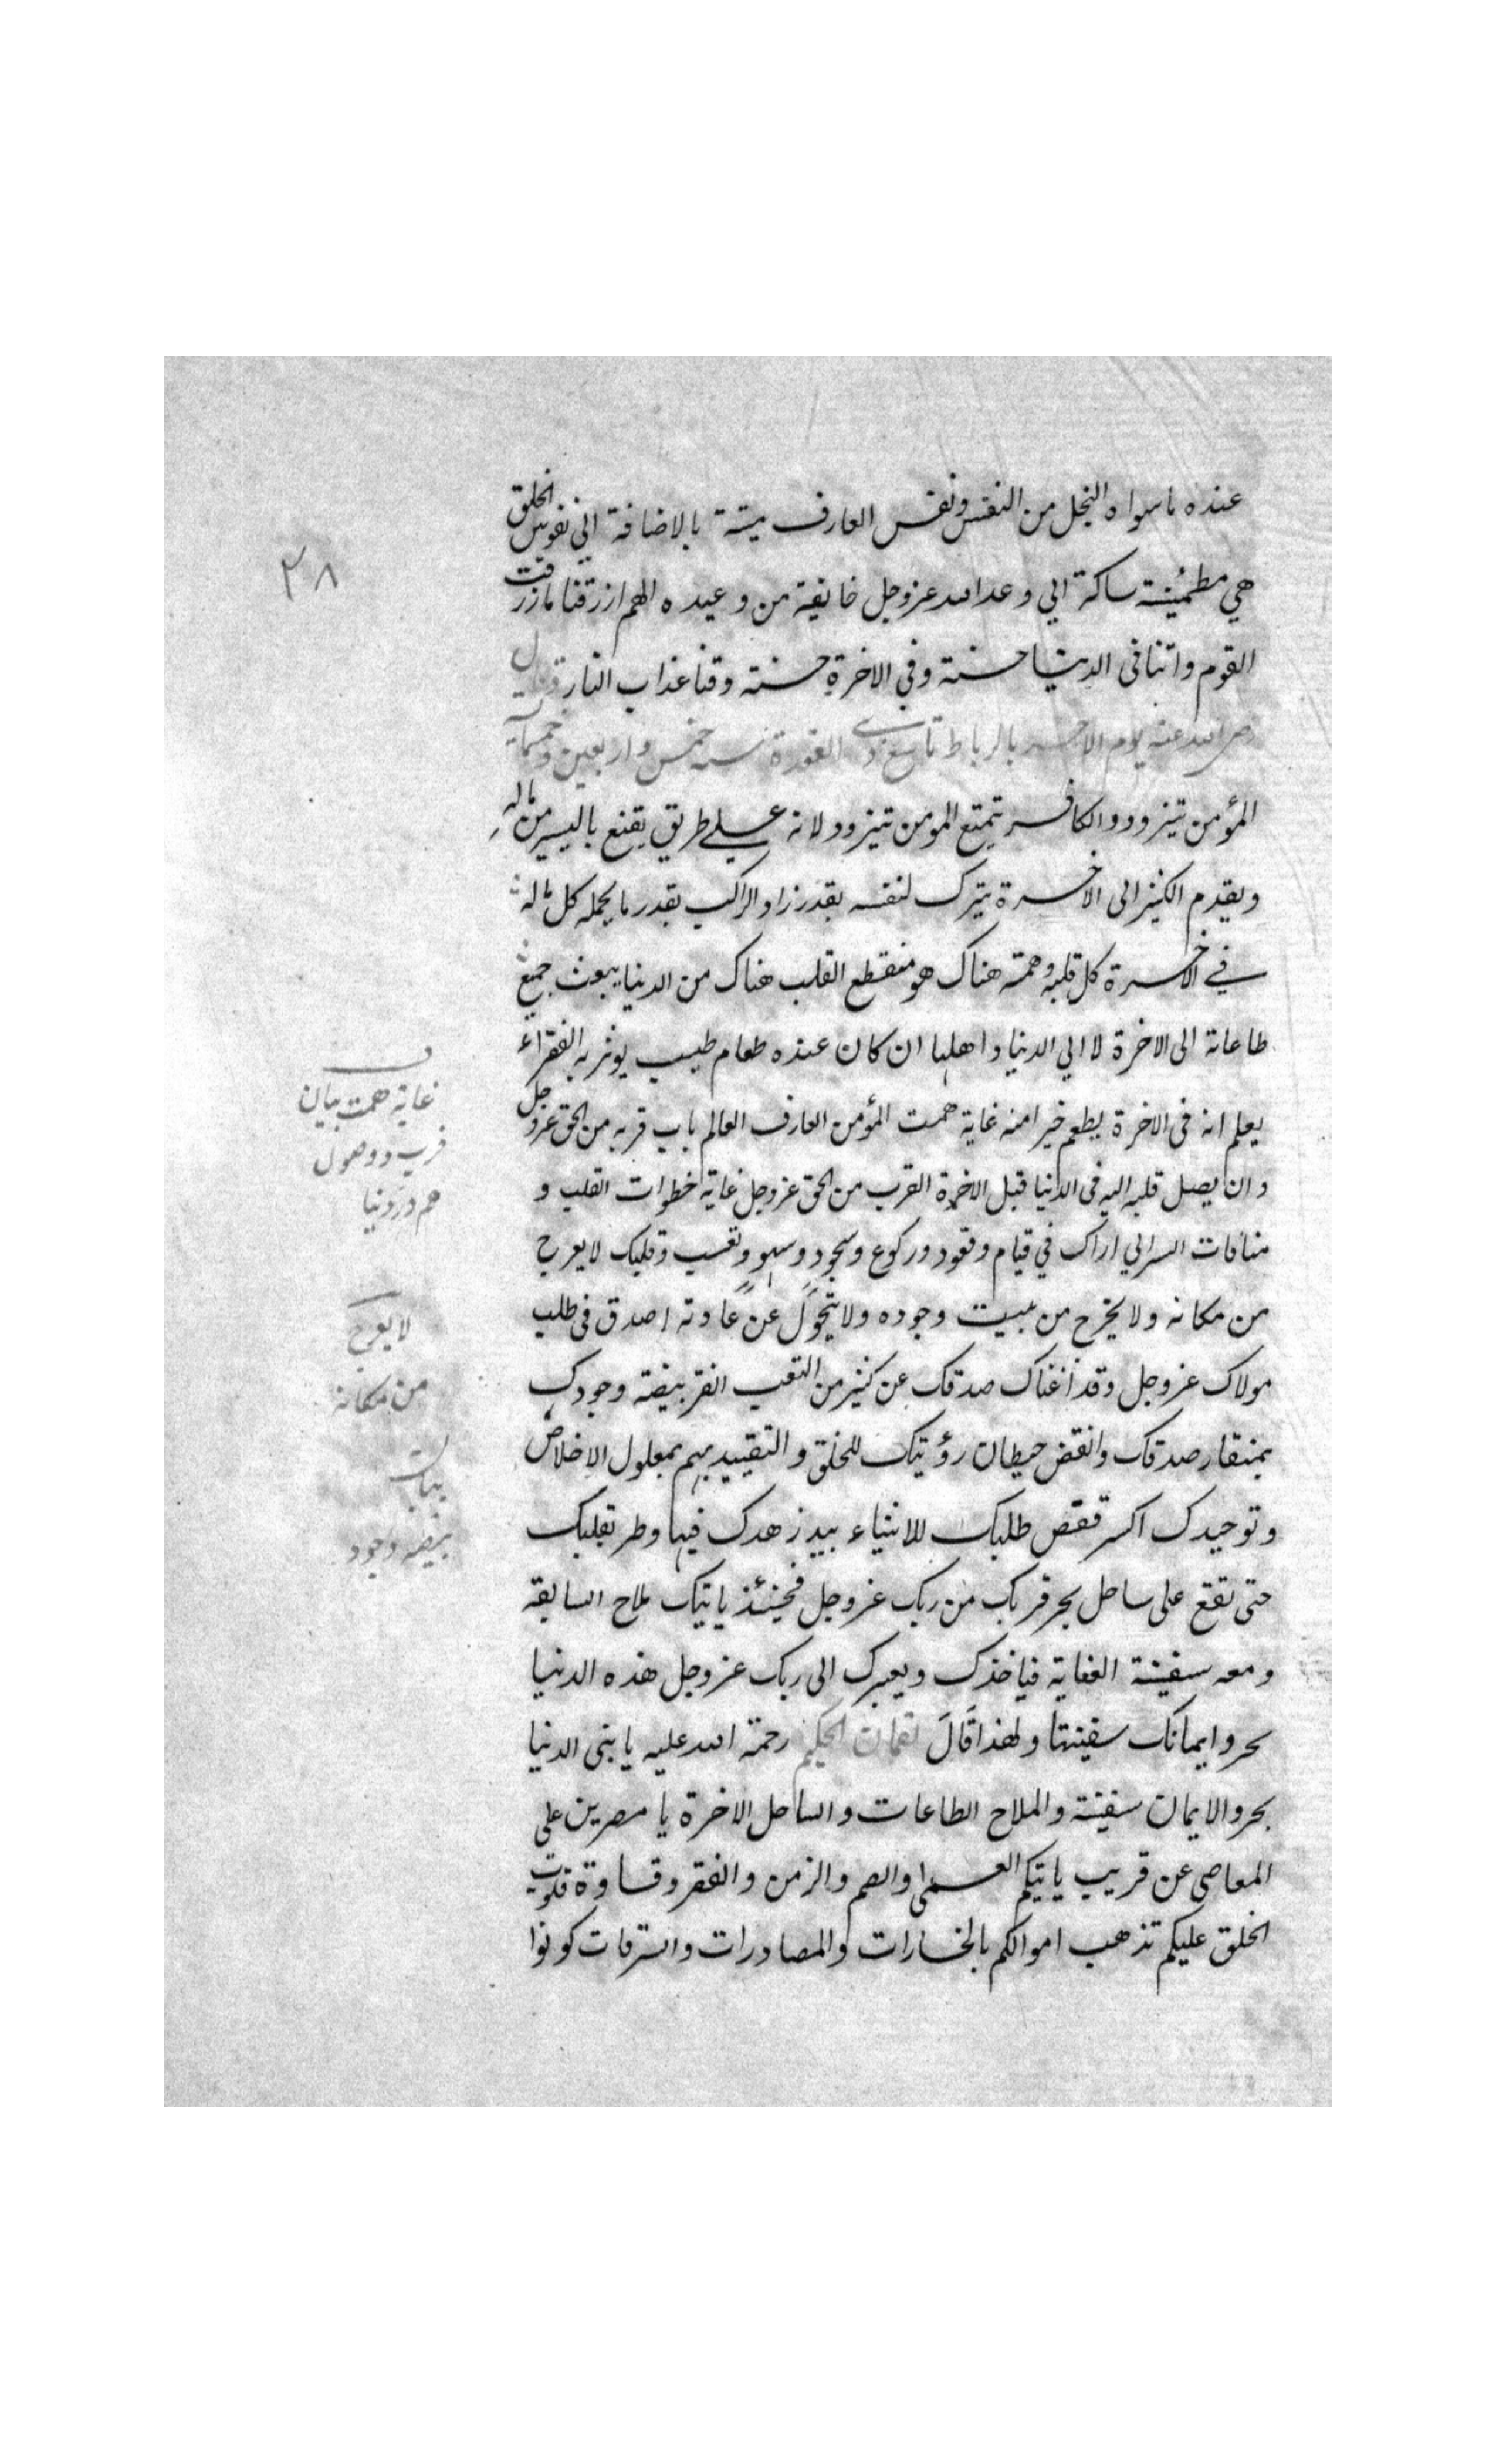 عنده ماسواه البخل من النفس ونفس العارف ميتة بالاضافة الي نفوس الخلق
٢٨
هي مطمئنة ساكنة الي وعد الله عزوجل خائفة من وعيده اللهم ارزقنا مارزقت
القوم واتنا فى الدنيا حسنة وفي الاخرة حسنة وقنا عذاب النار وقال
رضي الله عنه يوم الاحد بالرباط تاسع ذي القعدة سنه خمس واربعين وخمسمآية
المؤمن تيزود والكافر يتمتع المومن تيزود لانه علي طريق يقنع باليسير من ماله
ويقدم الكثير الى الاخرة يترك لنفسه بقدر زاد الراكب بقدر ما يحمله كل ماله
في الاخرة كل قلبه وهمته هناك هو منقطع القلب هناك من الدنيا يبعث جميع
طاعاته الى الاخرة لا الي الدنيا واهلها ان كان عنده طعام طيب يوثر به الفقراء
يعلم انه فى الاخرة يطعم خيرا منه غاية همت المؤمن العارف العالم باب قربه من الحق عزوجل
وان يصل قلبه اليه فى الدنيا قبل الاخرة القرب من الحق عزوجل غاية خطوات القلب و
السر اني اراك في قيام وقعود وركوع وسجود وسهر وتعب وقلبك لا يعرج
من مكانه ولا يخرج من بيت وجوده ولا يتحول عن عادته اصدق فى طلب
مولاك عزوجل وقد أغناك صدقك عن كثير من التعب انقر بيضة وجودك
بمنقار صدقك وانقض حيطان رؤيتك للخلق والتقييد بهم بمعاول الاخلاص
وتوحيدك اكسر قفص طلبك للاشياء بيد زهدك فيها وطر بقلبك
حتى تقع على ساحل بحر قربك من ربك عزوجل فحينئذ ياتيك ملاح السابقة
ومعه سفينة العناية فياخذك ويعبرك الى ربك عزوجل هذه الدنيا
بحر وايمانك سفينتها ولهذا قال لقمان الحكيم رحمة الله عليه يا بنى الدنيا
بحر والايمان سفينة والملاح الطاعات والساحل الاخرة يا مصرين على
المعاصي عن قريب ياتيكم العمى والصم والزمن والفقر وقساوة قلوب
الخلق عليكم تذهب اموالكم بالخسارات والمصادرات والسرقات كونوا
غاية همت بيان
قرب ووصول
هم در دنيا
لا يعرج
من مكانه
بيان
بيضه وجود